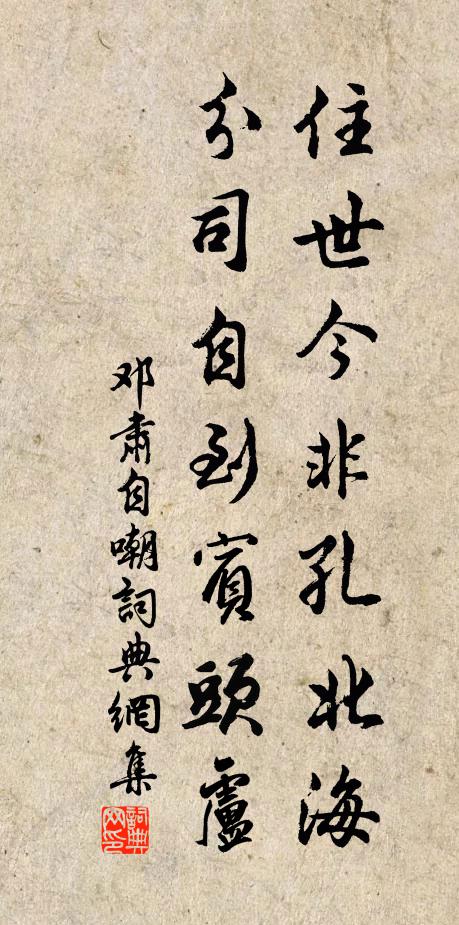 住世今非孔北海
分司自到賓頭盧
邓肅自嘲詞典網集
詞典
网印